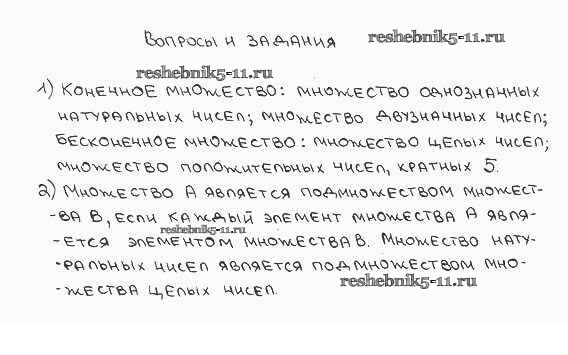 Вопросы и задания reshebnik5-11.ru
reshebnik5-11.ru
1) Конечное множество: множество однозначных
натуральных чисел; множество двузначных чисел;
Бесконечное множество: множество целых чисел;
множество положительных чисел, кратных 5.
2) Множество А является подмножеством множест-
-ва В, если каждый элемент множества А явля-
reshebnik5-11.ru
-ется элементом множества В. Множество нату-
-ральных чисел является подмножеством мно-
reshebnik5-11.ru
-жества целых чисел.